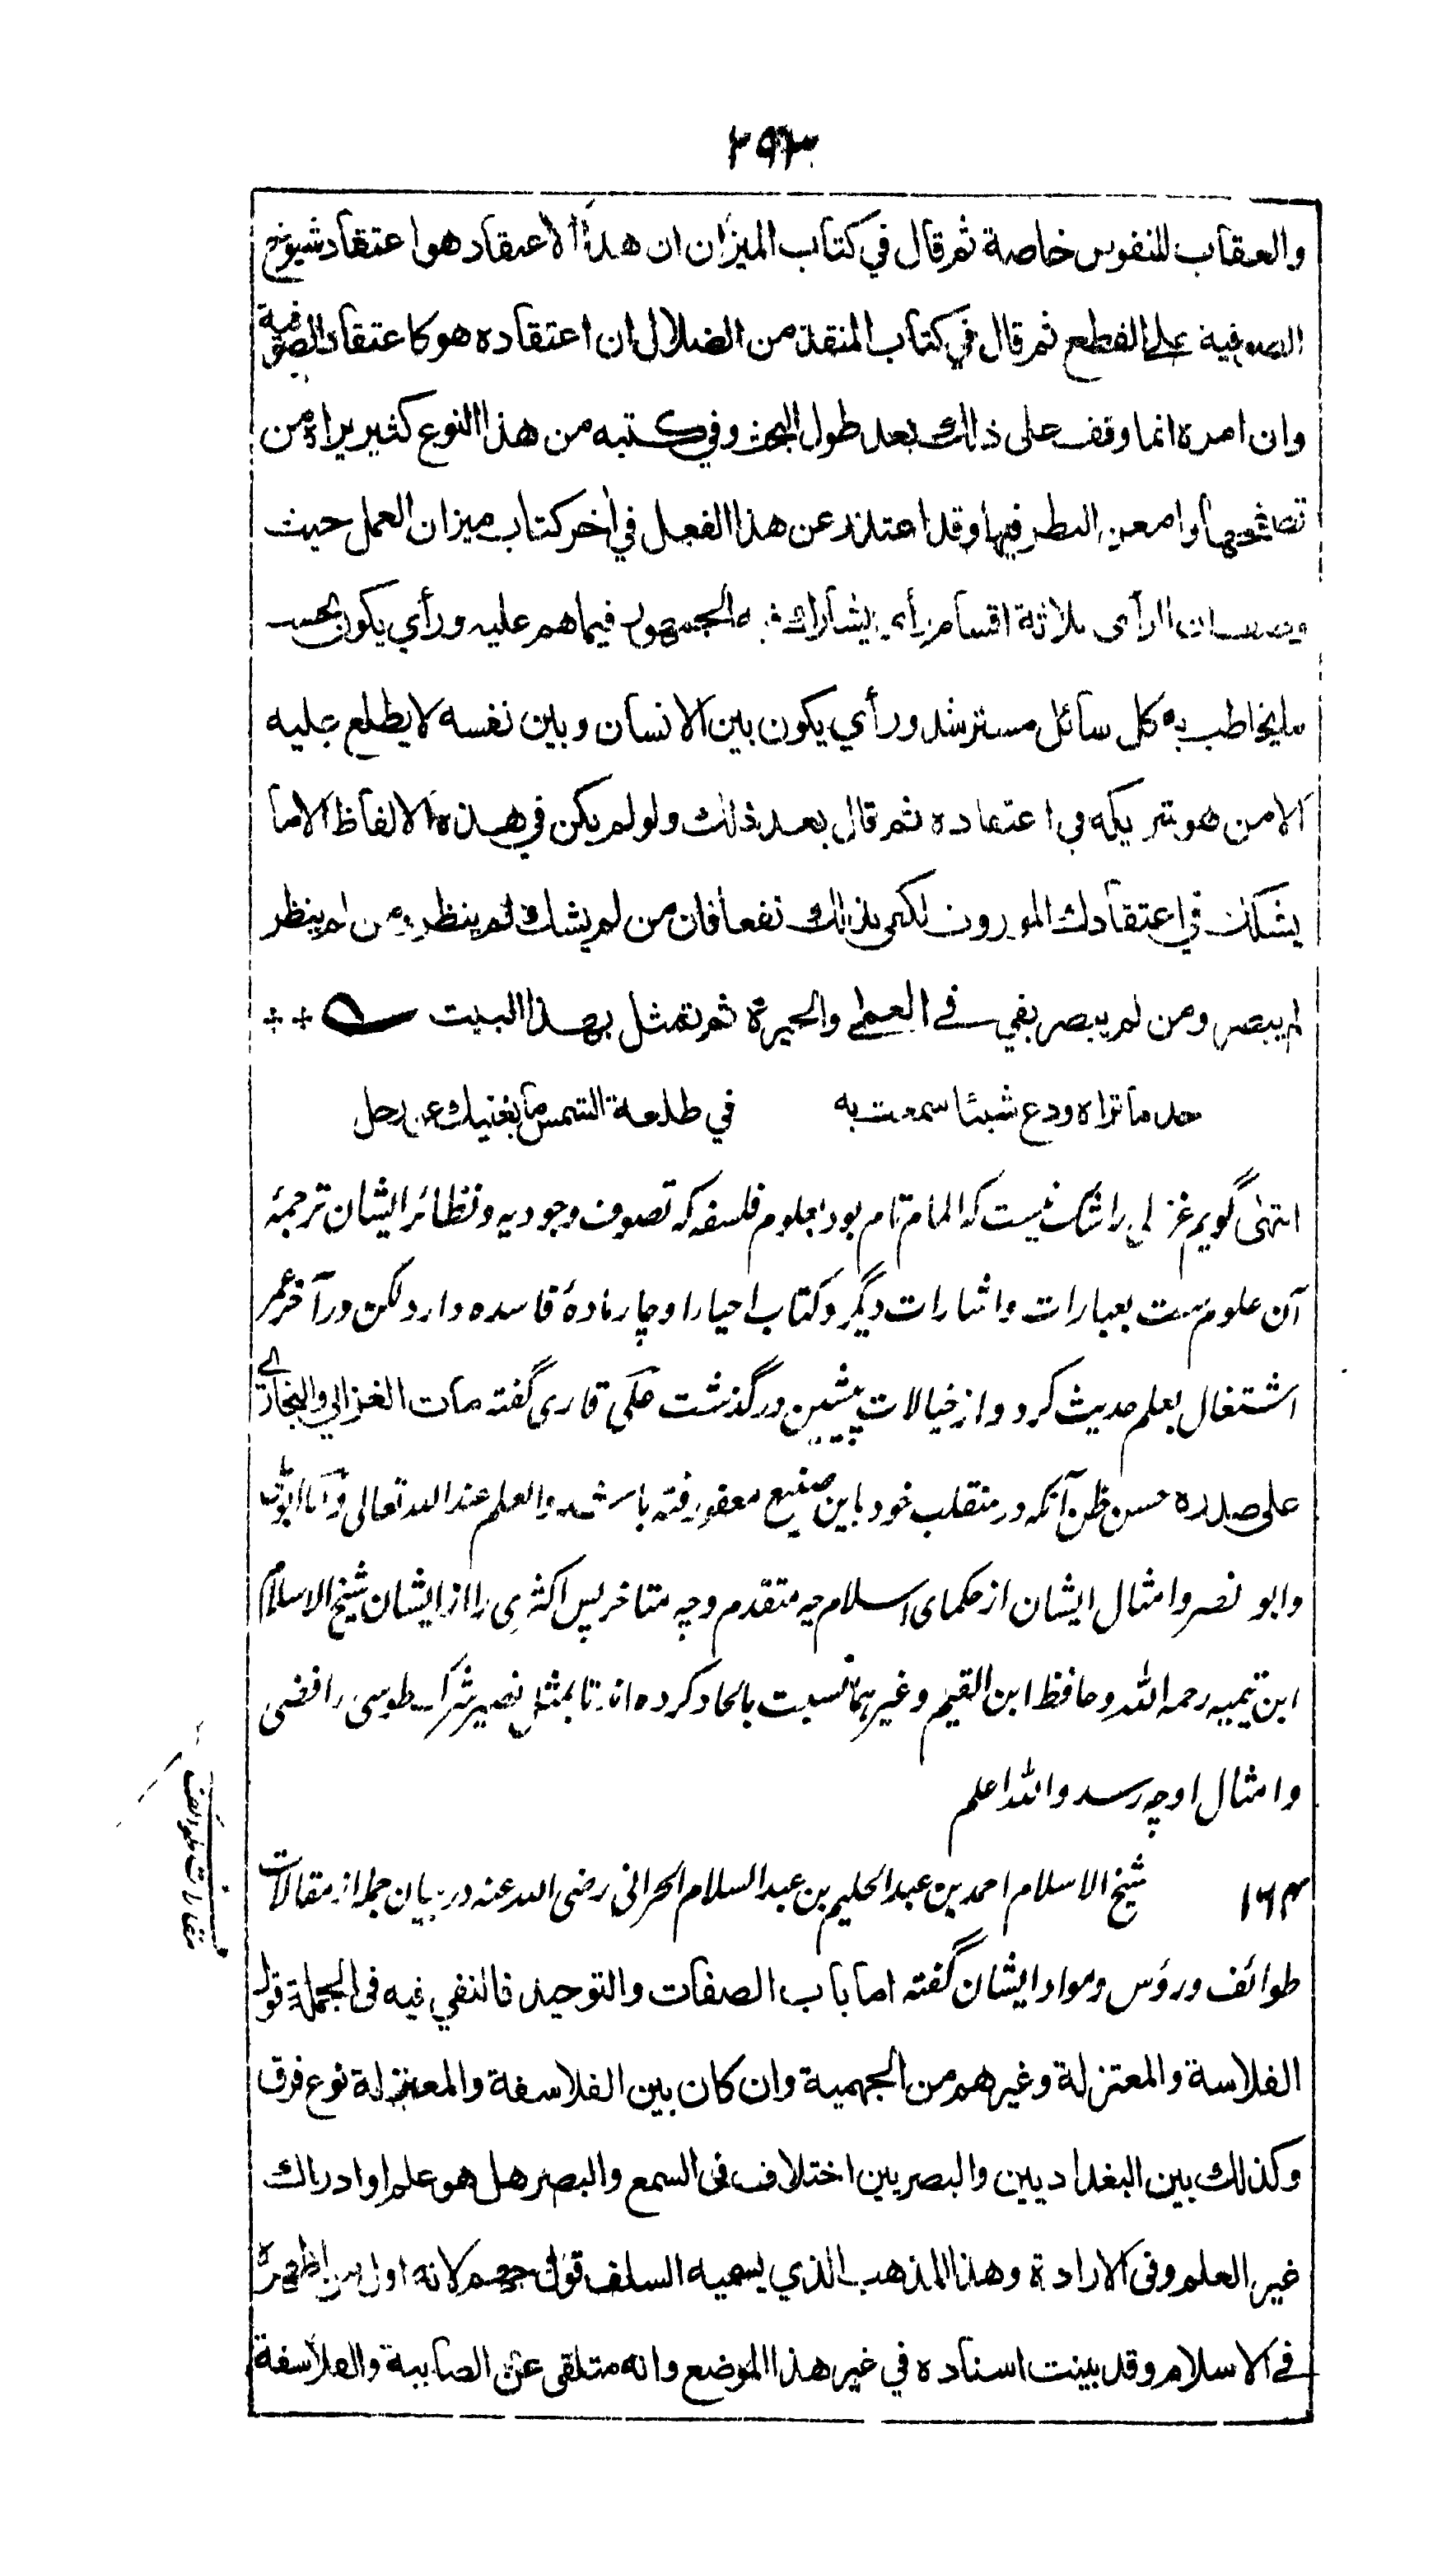 ۲۹۳
والعقاب للنفوس خاصة ثم قال في كتاب الميزان ان هذا الاعتقاد هو اعتقاد شيوخ
الصوفية على القطع ثم قال في كتاب المنقذ من الضلال ان اعتقاده هو كاعتقاد الصوفية
وان امره انما وقف على ذالك بعد طول البحث وفي كتبه من هذا النوع كثير يراه من
تصفحها وامعن النظر فيها وقد اعتذر عن هذا الفعل في اخر كتاب ميزان العمل حيث
ان الرأى ثلاثة اقسام رأي يشارك فيه الجمهور فيما هم عليه ورأي يكون بحسب
ما يخاطب به كل سائل مسترشد ورأي يكون بين الانسان وبين نفسه لا يطلع عليه
الا من هو شريكه في اعتقاده ثم قال بعد ذلك ولو لم يكن في هذه الالفاظ الا ما
يشكك في اعتقادك الموروث لكفى بذالك نفعا فان من لم يشك لم ينظر ومن لم ينظر
لم يبصر ومن لم يبصر بقي فے العمى والحيرة ثم تمثل بهذا البيت
خذ ما تراه ودع شيئا سمعت به في طلعة الشمس ما يغنيك عن زحل
انتهىٰ گويم غزالى را شك نيست كه المام تام بود بعلوم فلسفه كه تصوف وجوديه ونظائر ايشان ترجمهٔ
آن علوم ست بعبارات واشارات ديگر وكتاب احيا را او چار مادهٔ فاسده دارد لكن در آخر عمر
اشتغال بعلم حديث كرد واز خيالات پيشين درگذشت على قارى گفته مات الغزالي والبخاري
على صدره حسن ظن آنكه در منقلب خود باين صنيع مغفور رفته باشد والعلم عند الله تعالى واما
وابو نصر وامثال ايشان از حكماى اسلام چه متقدم وچه متاخر پس اكثرى را از ايشان شيخ الاسلام
ابن تيميه رحمه الله وحافظ ابن القيم وغيرهما نسبت بالحاد كرده اند تا بمثل نصير شرك طوسى رافضى
وامثال او چه رسد والله اعلم
۱۶۴ شيخ الاسلام احمد بن عبد الحليم بن عبد السلام الحرانى رضى الله عنه در بيان جمله از مقالات
مقالات طوائف
طوائف ورؤس ومواد ايشان گفته اما باب الصفات والتوحيد فالنفي فيه فى الجملة قول
الفلاسة والمعتزلة وغيرهم من الجهمية وان كان بين الفلاسفة والمعتزلة نوع فرق
وكذالك بين البغداديين والبصريين اختلاف فى السمع والبصر هل هو علم او ادراك
غير العلم وفى الارادة وهذا المذهب الذي يسميه السلف قول جهم لانه اول من اظهره
فے الاسلام وقد بينت اسناده في غير هذا الموضع وانه متلقى عن الصابية والفلاسفة